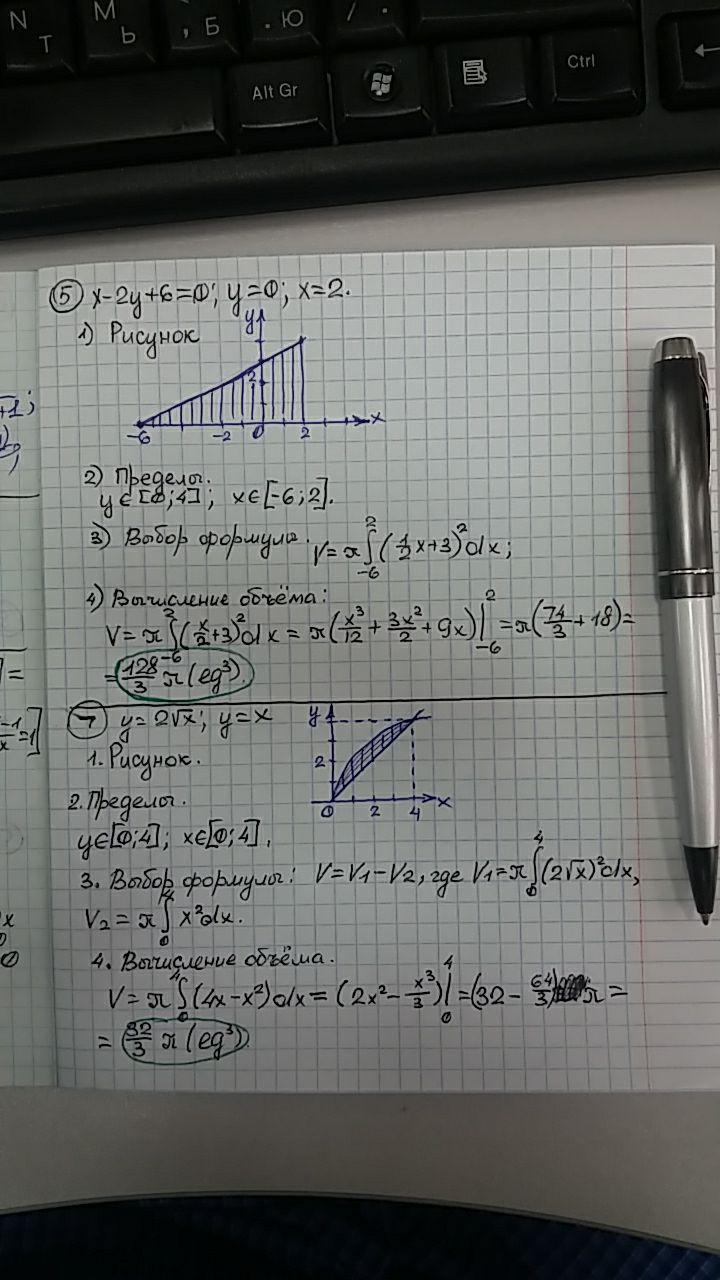 N T
M Ь
, Б
. Ю
/ .
Alt Gr
Ctrl
+1;
⑤ x-2y+6=0; y=0; x=2.
1) Рисунок
y
2
-6 -2 0 2 x
2) Пределы.
y∈[0;4]; x∈[-6;2].
3) Выбор формулы. V=π∫₋₆²(1/2 x+3)²dx;
4) Вычисление объёма:
V=π∫₋₆²(x/2+3)²dx = π(x³/12 + 3x²/2 + 9x)|₋₆² = π(74/3 + 18)=
= 128/3 π (ед³).
⑦ y=2√x; y=x
y
2
0 2 4 x
1. Рисунок.
2. Пределы.
y∈[0;4]; x∈[0;4].
3. Выбор формулы: V=V₁-V₂, где V₁=π∫₀⁴(2√x)²dx,
V₂=π∫₀⁴x²dx.
4. Вычисление объёма.
V=π∫₀⁴(4x-x²)dx = (2x² - x³/3)|₀⁴ = (32 - 64/3)π =
= 32/3 π (ед³)